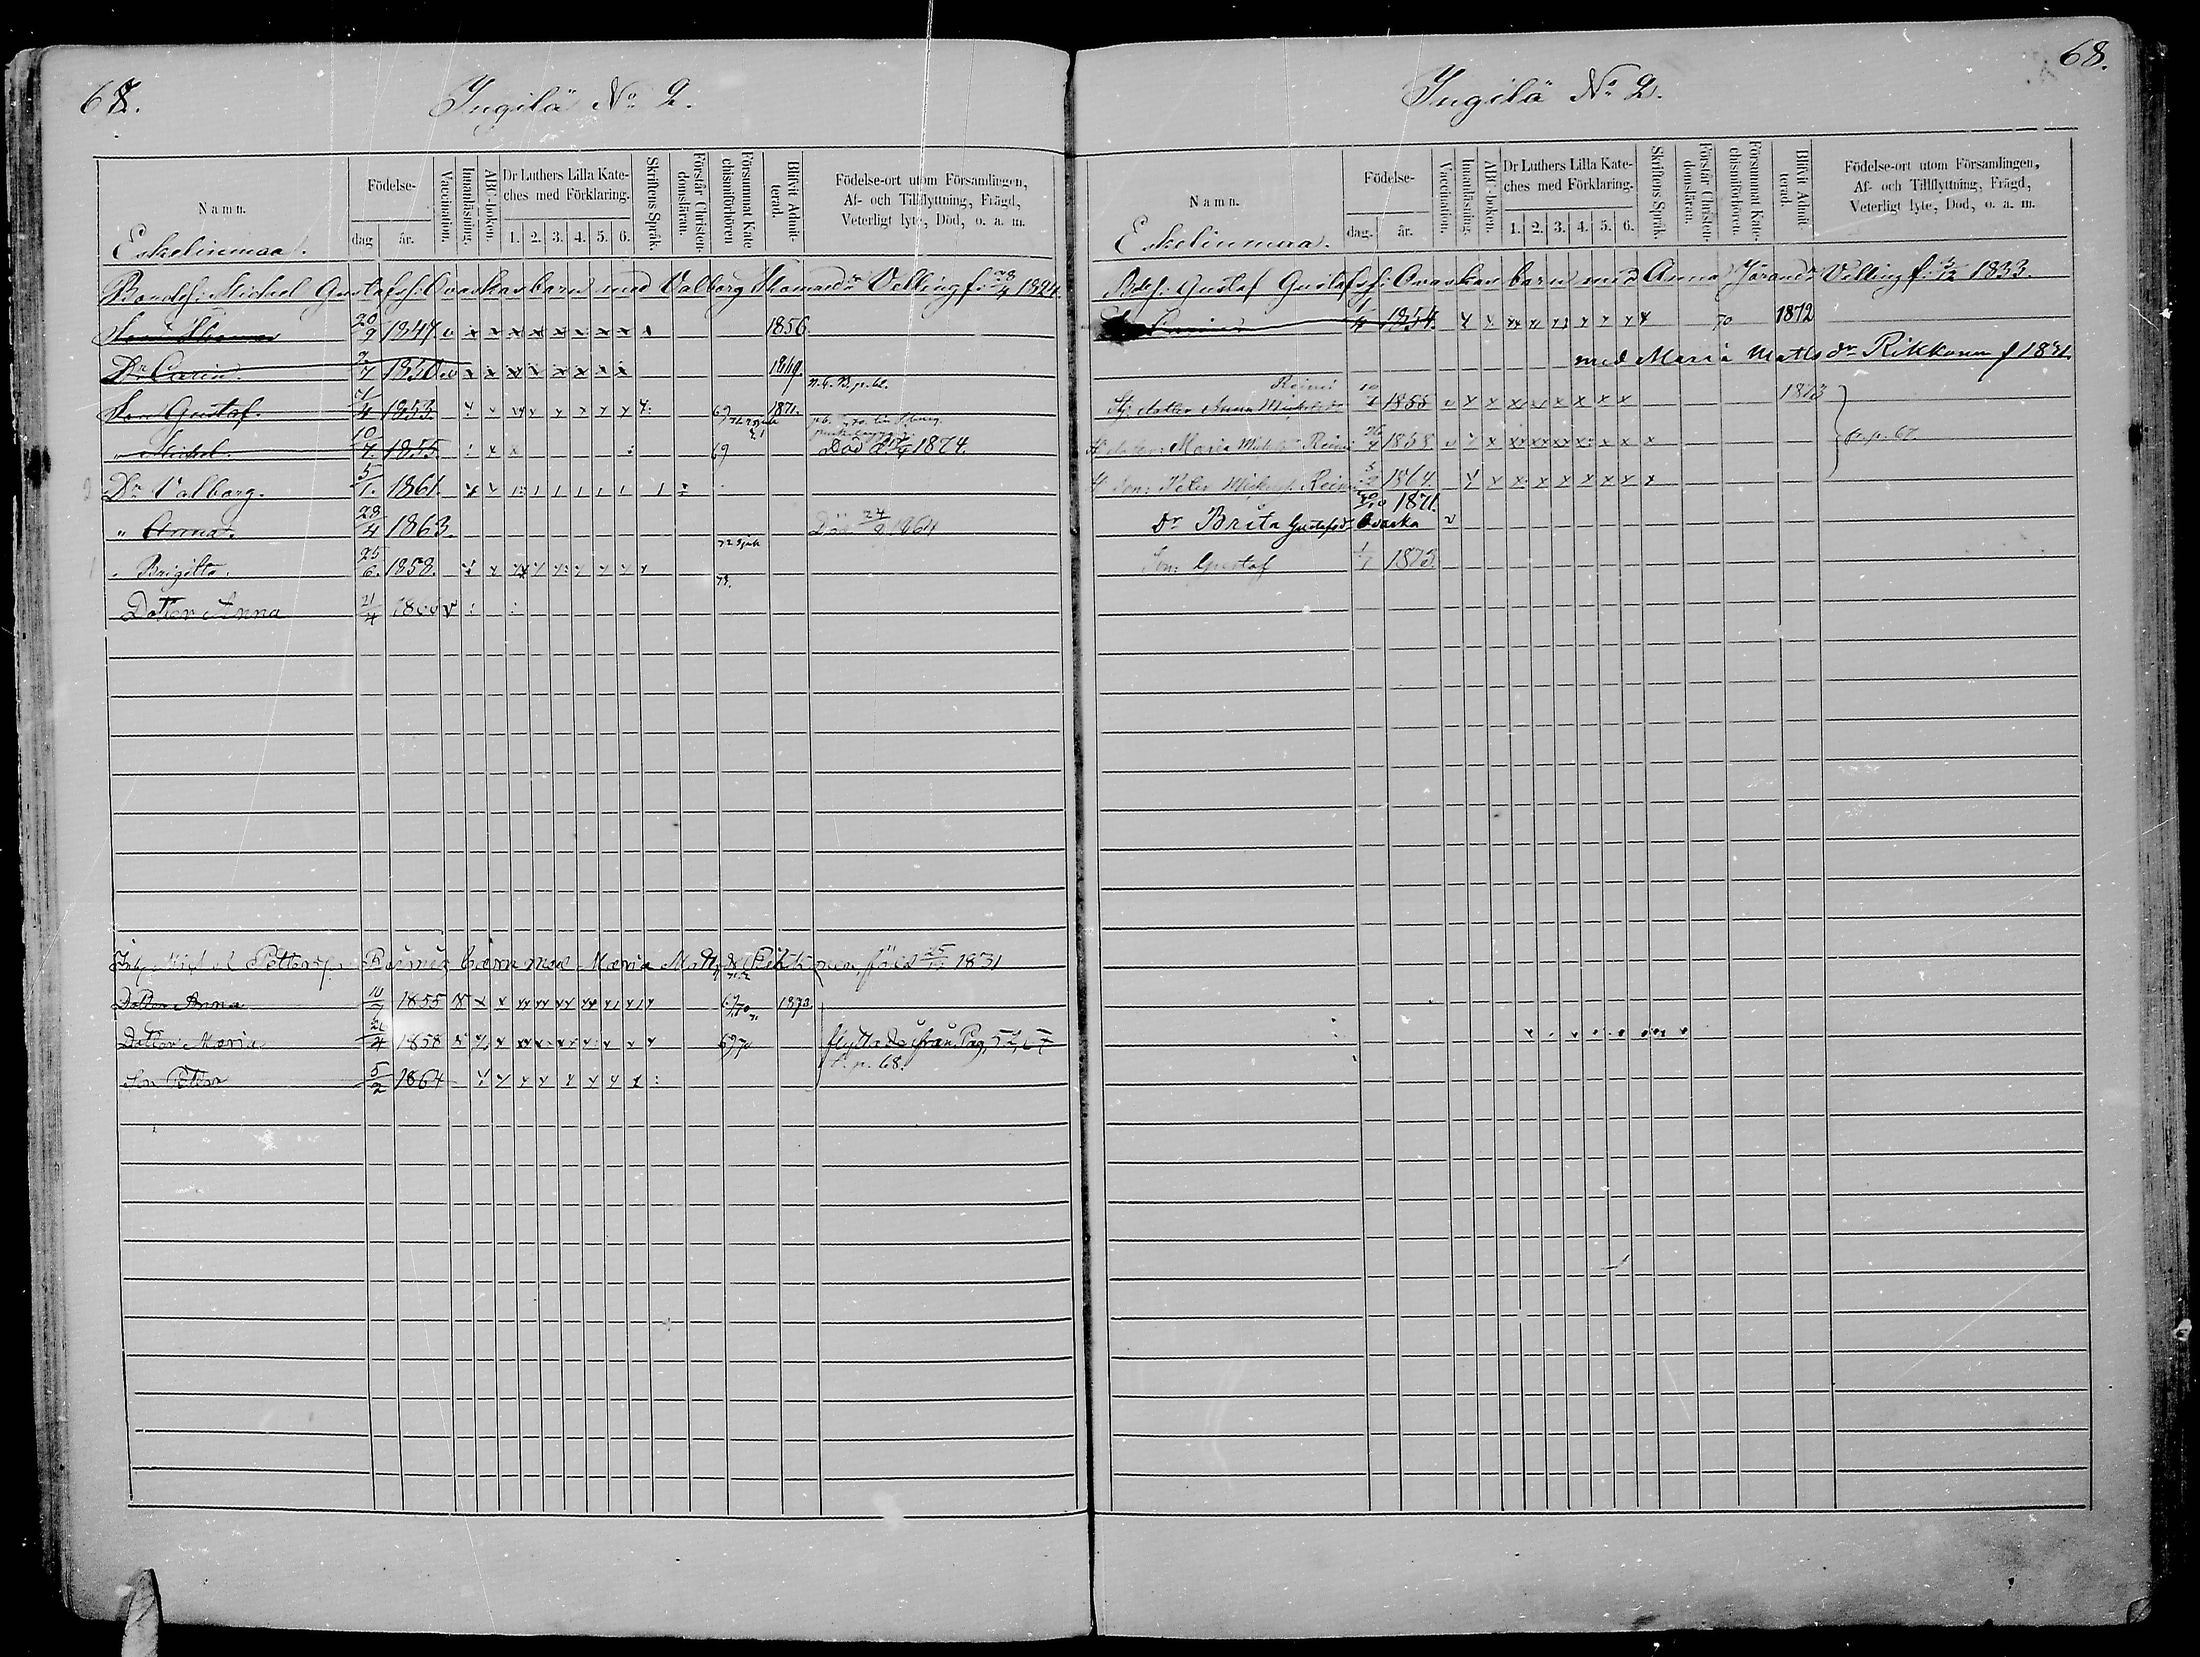 68.
Ingilä No 2.
Namn.
Födelse-
dag
år.
Vaccination.
Innanläsning.
ABC-boken.
Dr Luthers Lilla Kate-
ches med Förklaring.
1. 2. 3. 4. 5. 6.
Skriftens Språk.
Förstår Christen-
domsläran.
Försummat Kate-
chismiförhören
Blifvit Admit-
terad.
Födelse-ort utom Församlingen,
Af- och Tillflyttning, Frägd,
Veterligt lyte, Död, o. a. m.
Eskelinmaa.
Bondes: Michel Gustafss: Ovaskas barn med Valborg Thomasdr Velling f: 28/4 1824.
Son Thomas 20/9 1847 v x x x x x x x x x 1856.
Dr Carin. 2/7 1850 v x x x x x x x x 1869. N.G.B. p. 62.
Son Gustaf. 1/4 1853 69 1871.
" Michel. 10/7 1855 69 Död 1874.
2 Dr Valborg. 5/1. 1861.
" Anna. 28/4 1863. Död 24/8 1864
1 " Brigitta. 25/6. 1858. 72 sjuk 73.
Dotter Anna 21/4
Pettersson Reinis barn med Maria Matts dr Rikkonen, född 1831
Dotter Anna 10/4 1855 69 70 71 1873
Dotter Maria 26/4 1858 69 70 flyttade ifrån Pag. 52, 67
Son Petter 5/2 1864 p. 68.
68.
Ingilä No 2.
Namn.
Födelse-
dag.
år.
Vaccination.
Innanläsning.
ABC-boken.
Dr Luthers Lilla Kate-
ches med Förklaring.
1. 2. 3. 4. 5. 6.
Skriftens Språk.
Förstår Christen-
domsläran.
Försummat Kate-
chismiförhören.
Blifvit Admit-
terad.
Födelse-ort utom Församlingen,
Af- och Tillflyttning, Frägd,
Veterligt lyte, Död, o. a. m.
Eskelinmaa.
Bdes: Gustaf Gustafss: Ovaskas barn med Anna Jörandr Velling f: 3/12 1833.
1/4 1854. 70 1872
med Maria Matts dr Rikkonen f 1831.
Reini
Anna Michelsdr 10/4 1855 v x x x x x x x x 1873
Maria Michelsdr Reini 26/4 1858 v fr. p. 67.
Son: Peter Michelss. Reini 5/2 1864.
Dr Brita Gustafsdr Ovaska 1871. v
Son: Gustaf 1/7 1873